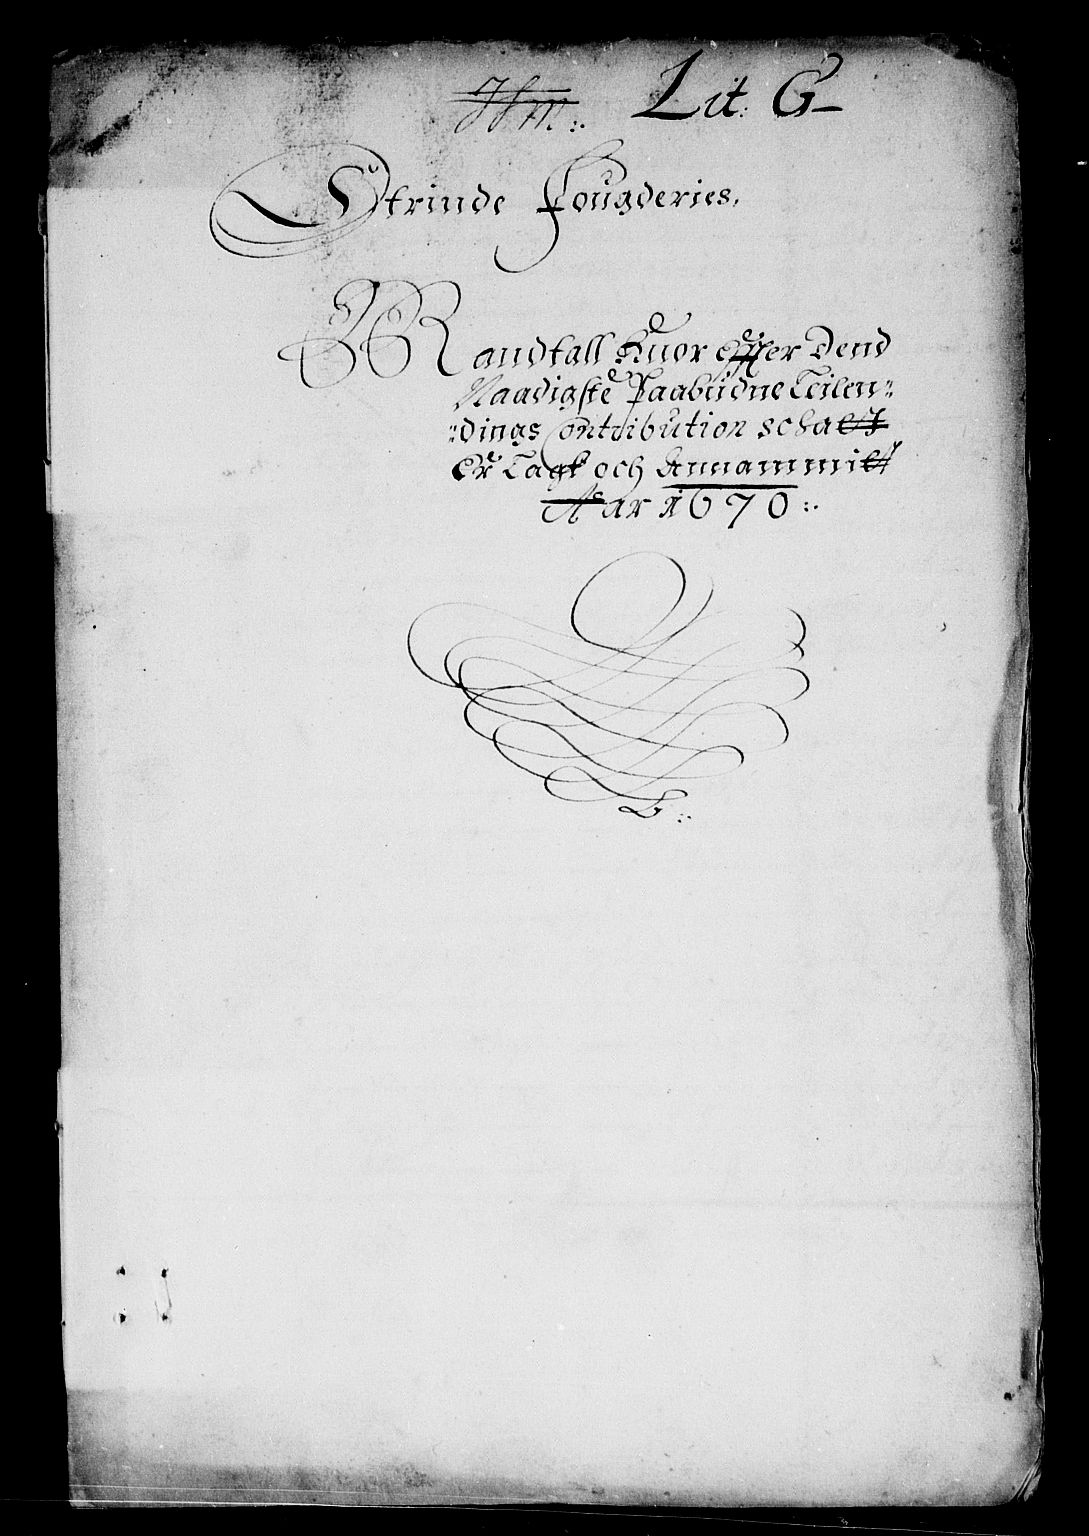 Lit: G
Strinde Fougderies.
Mandtall Huor effter Dend
Naadigste Paabudne Teilen:
:dings Contribution schatt
Er Tagt och Annammitt
Aar 1670